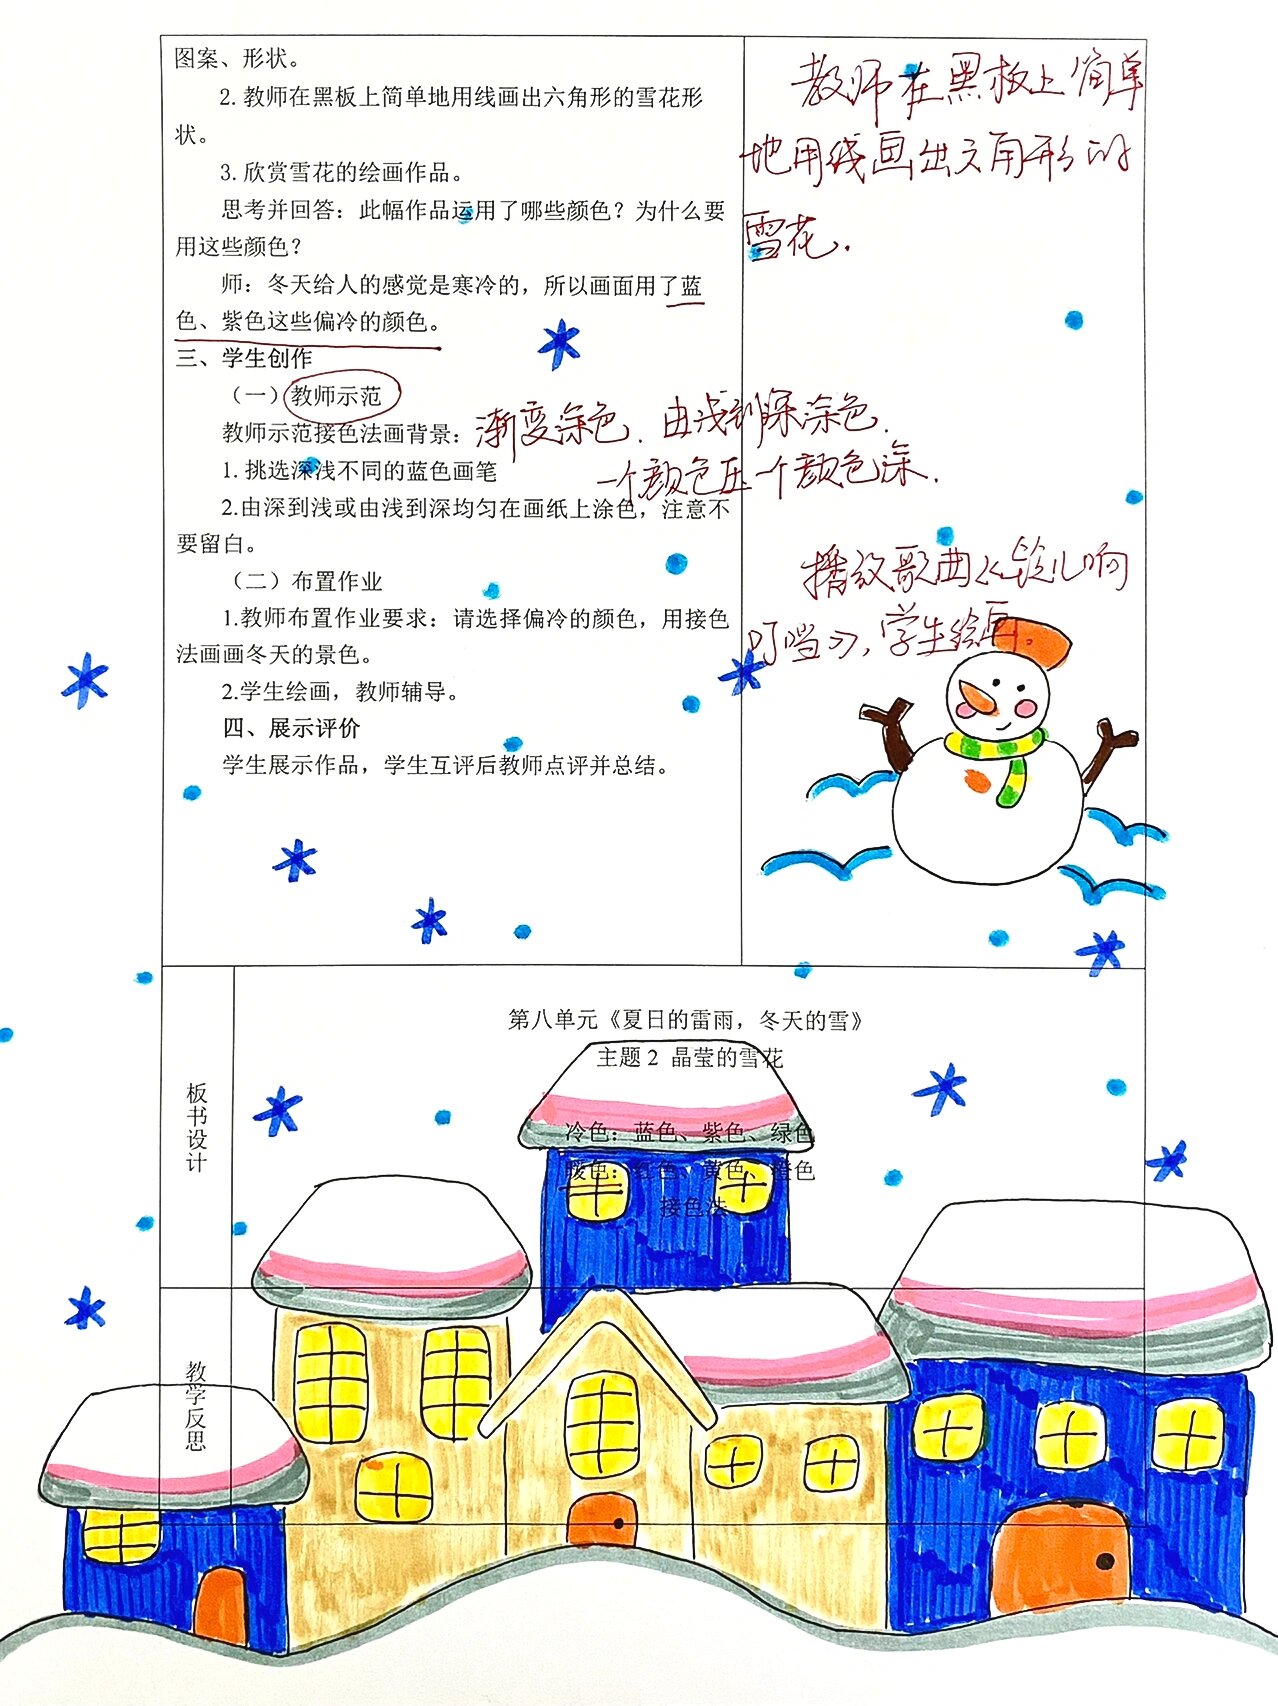 图案、形状。
2. 教师在黑板上简单地用线画出六角形的雪花形
状。
3. 欣赏雪花的绘画作品。
思考并回答：此幅作品运用了哪些颜色？为什么要
用这些颜色？
师：冬天给人的感觉是寒冷的，所以画面用了蓝
色、紫色这些偏冷的颜色。
三、学生创作
（一）教师示范
教师示范接色法画背景：
1. 挑选深浅不同的蓝色画笔
2.由深到浅或由浅到深均匀在画纸上涂色，注意不
要留白。
（二）布置作业
1.教师布置作业要求：请选择偏冷的颜色，用接色
法画画冬天的景色。
2.学生绘画，教师辅导。
四、展示评价
学生展示作品，学生互评后教师点评并总结。
教师在黑板上简单
地用线画出六角形的
雪花.
渐变涂色. 由浅到深涂色.
一个颜色压一个颜色深.
播放歌曲《铃儿响
叮当》,学生绘画。
板书设计
第八单元《夏日的雷雨，冬天的雪》
主题 2 晶莹的雪花
冷色：蓝色、紫色、绿色
暖色：红色、黄色、橙色
接色法
教学反思